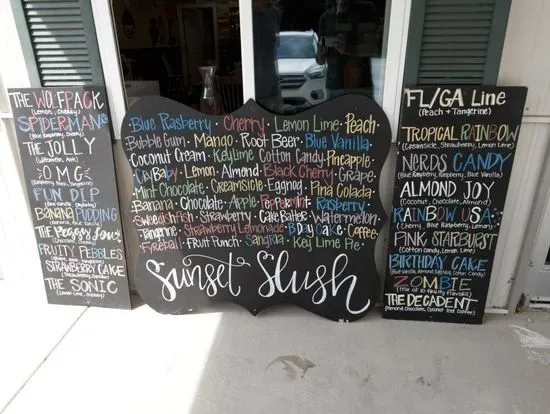 THE WOLFPACK
(Lemon, Cherry)
SPIDERMAN
(Blue Raspberry, Cherry)
THE JOLLY
(Watermelon, Apple)
OMG
FUN DIP
BANANA PUDDING
THE Peggy Sue
(Chocolate, Cherry)
FRUITY PEBBLES
STRAWBERRY CAKE
(Strawberry, Cake Batter)
THE SONIC
(Lemon Lime, Cherry)
Blue Rasberry · Cherry · Lemon Lime · Peach
Bubble Gum · Mango · Root Beer · Blue Vanilla
Coconut Cream · Key Lime · Cotton Candy · Pineapple
Cry Baby · Lemon · Almond · Black Cherry · Grape
Mint Chocolate · Creamsicle · Eggnog · Pina Colada
Banana · Chocolate · Apple · Peppermint · Raspberry
Swedish fish · Strawberry · Cake Batter · Watermelon
Tangerine · Strawberry Lemonade · B Day Cake · Coffee
Fireball · Fruit Punch · Sangria · Key Lime Pie
Sunset Slush
FL/GA Line
(Peach + Tangerine)
TROPICAL RAINBOW
(Creamsicle, Strawberry, Lemon Lime)
NERDS CANDY
(Blue Raspberry, Raspberry, Blue Vanilla)
ALMOND JOY
(Coconut, Chocolate, Almond)
RAINBOW USA
(Cherry, Blue Raspberry, Lemon)
PINK STARBURST
(Cotton Candy, Lemon Lime)
BIRTHDAY CAKE
(Blue Vanilla, Almond, Cotton Candy)
ZOMBIE
(Mix of 10 fruity flavors)
THE DECADENT
(Almond, Chocolate, Coconut, Iced Coffee)